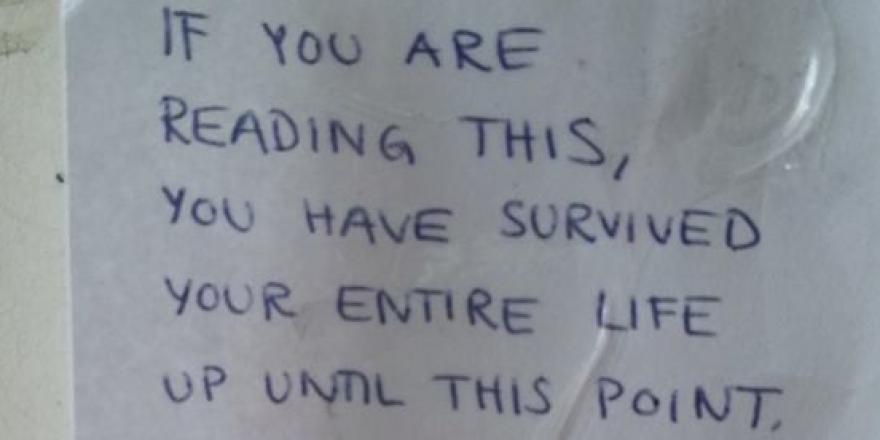 IF YOU ARE
READING THIS,
YOU HAVE SURVIVED
YOUR ENTIRE LIFE
UP UNTIL THIS POINT.